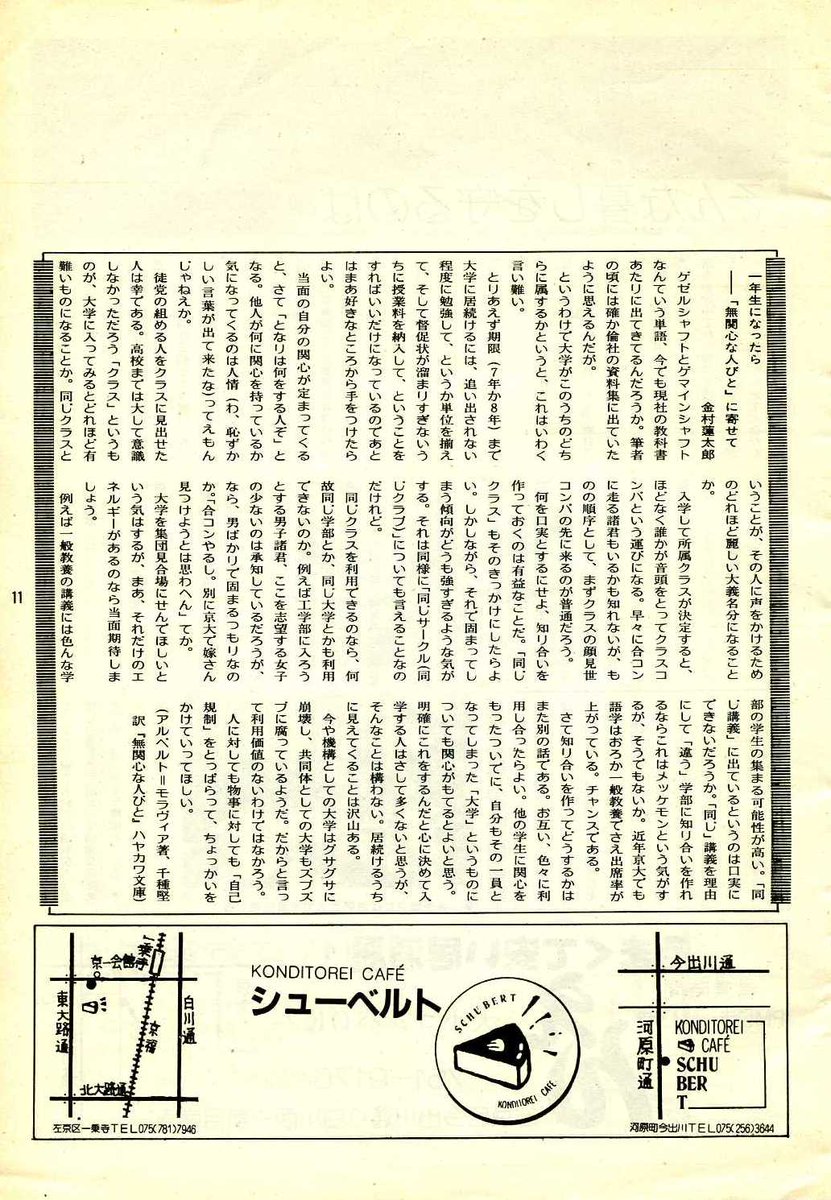 一年生になったら
――「無関心な人びと」に寄せて
金村蓮太郎
ゲゼルシャフトとゲマインシャフト
なんていう単語、今でも現社の教科書
あたりに出てきてるんだろうか。筆者
の頃には確か倫社の資料集に出ていた
ように思えるんだが。
というわけで大学がこのうちのどち
らに属するかというと、これはいわく
言い難い。
とりあえず期限(7年か8年)まで
大学に居続けるには、追い出されない
程度に勉強して、というか単位を揃え
て、そして督促状が溜まりすぎないう
ちに授業料を納入して、ということを
すればいいだけになっているのであと
はまあ好きなところから手をつけたら
よい。
当面の自分の関心が定まってくる
と、さて「となりは何をする人ぞ」と
なる。他人が何に関心を持っているか
気になってくるのは人情(わ、恥ずか
しい言葉が出て来たな)ってえもん
じゃねえか。
徒党の組める人をクラスに見出せた
人は幸である。高校までは大して意識
しなかっただろう「クラス」というも
のが、大学に入ってみるとどれほど有
難いものになることか。同じクラスと
いうことが、その人に声をかけるため
のどれほど麗しい大義名分になること
か。
入学して所属クラスが決定すると、
ほどなく誰かが音頭をとってクラスコ
ンパという運びになる。早々に合コン
に走る諸君もいるかも知れないが、も
のの順序として、まずクラスの顔見世
コンパの先に来るのが普通だろう。
何を口実とするにせよ、知り合いを
作っておくのは有益なことだ。「同じ
クラス」もそのきっかけにしたらよ
い。しかしながら、それで固まってし
まう傾向がどうも強すぎるような気が
する。それは同様に「同じサークル(同
じクラブ)」についても言えることなの
だけれど。
同じクラスを利用できるのなら、何
故同じ学部とか、同じ大学とかも利用
できないのか。例えば工学部に入ろう
とする男子諸君、ここを志望する女子
の少ないのは承知しているだろうが、
なら、男ばかりで固まるつもりなの
か。「合コンやるし。別に京大で嫁さん
見つけようとは思わへん」てか。
大学を集団見合場にせんでほしいと
いう気はするが、まあ、それだけのエ
ネルギーがあるのなら当面期待しま
しょう。
例えば一般教養の講義には色んな学
部の学生の集まる可能性が高い。「同
じ講義」に出ているというのは口実に
できないだろうか。「同じ」講義を理由
にして「違う」学部に知り合いを作れ
るならこれはメッケモンという気がす
るが、そうでもないか。近年京大でも
語学はおろか一般教養でさえ出席率が
上がっている。チャンスである。
さて知り合いを作ってどうするかは
また別の話である。お互い、色々に利
用し合ったらよい。他の学生に関心を
もったついでに、自分もその一員と
なってしまった「大学」というものに
ついても関心がもてるとよいと思う。
明確にこれをするんだと心に決めて入
学する人はさして多くないと思うが、
そんなことは構わない。居続けるうち
に見えてくることは沢山ある。
今や機構としての大学はグサグサに
崩壊し、共同体としての大学もズブズ
ブに腐っているようだ。だからと言っ
て利用価値のないわけではなかろう。
人に対しても物事に対しても「自己
規制」をとっぱらって、ちょっかいを
かけていってほしい。
(アルベルト=モラヴィア著、千種堅
訳「無関心な人びと」ハヤカワ文庫)
11
一乗寺
京一会館
東大路通
京福
白川通
北大路通
左京区一乗寺TEL075(781)7946
KONDITOREI CAFÉ
シューベルト
SCHUBERT
KONDITOREI CAFÉ
今出川通
河原町通
KONDITOREI
CAFÉ
SCHU
BER
T
河原町今出川TEL075(256)3644